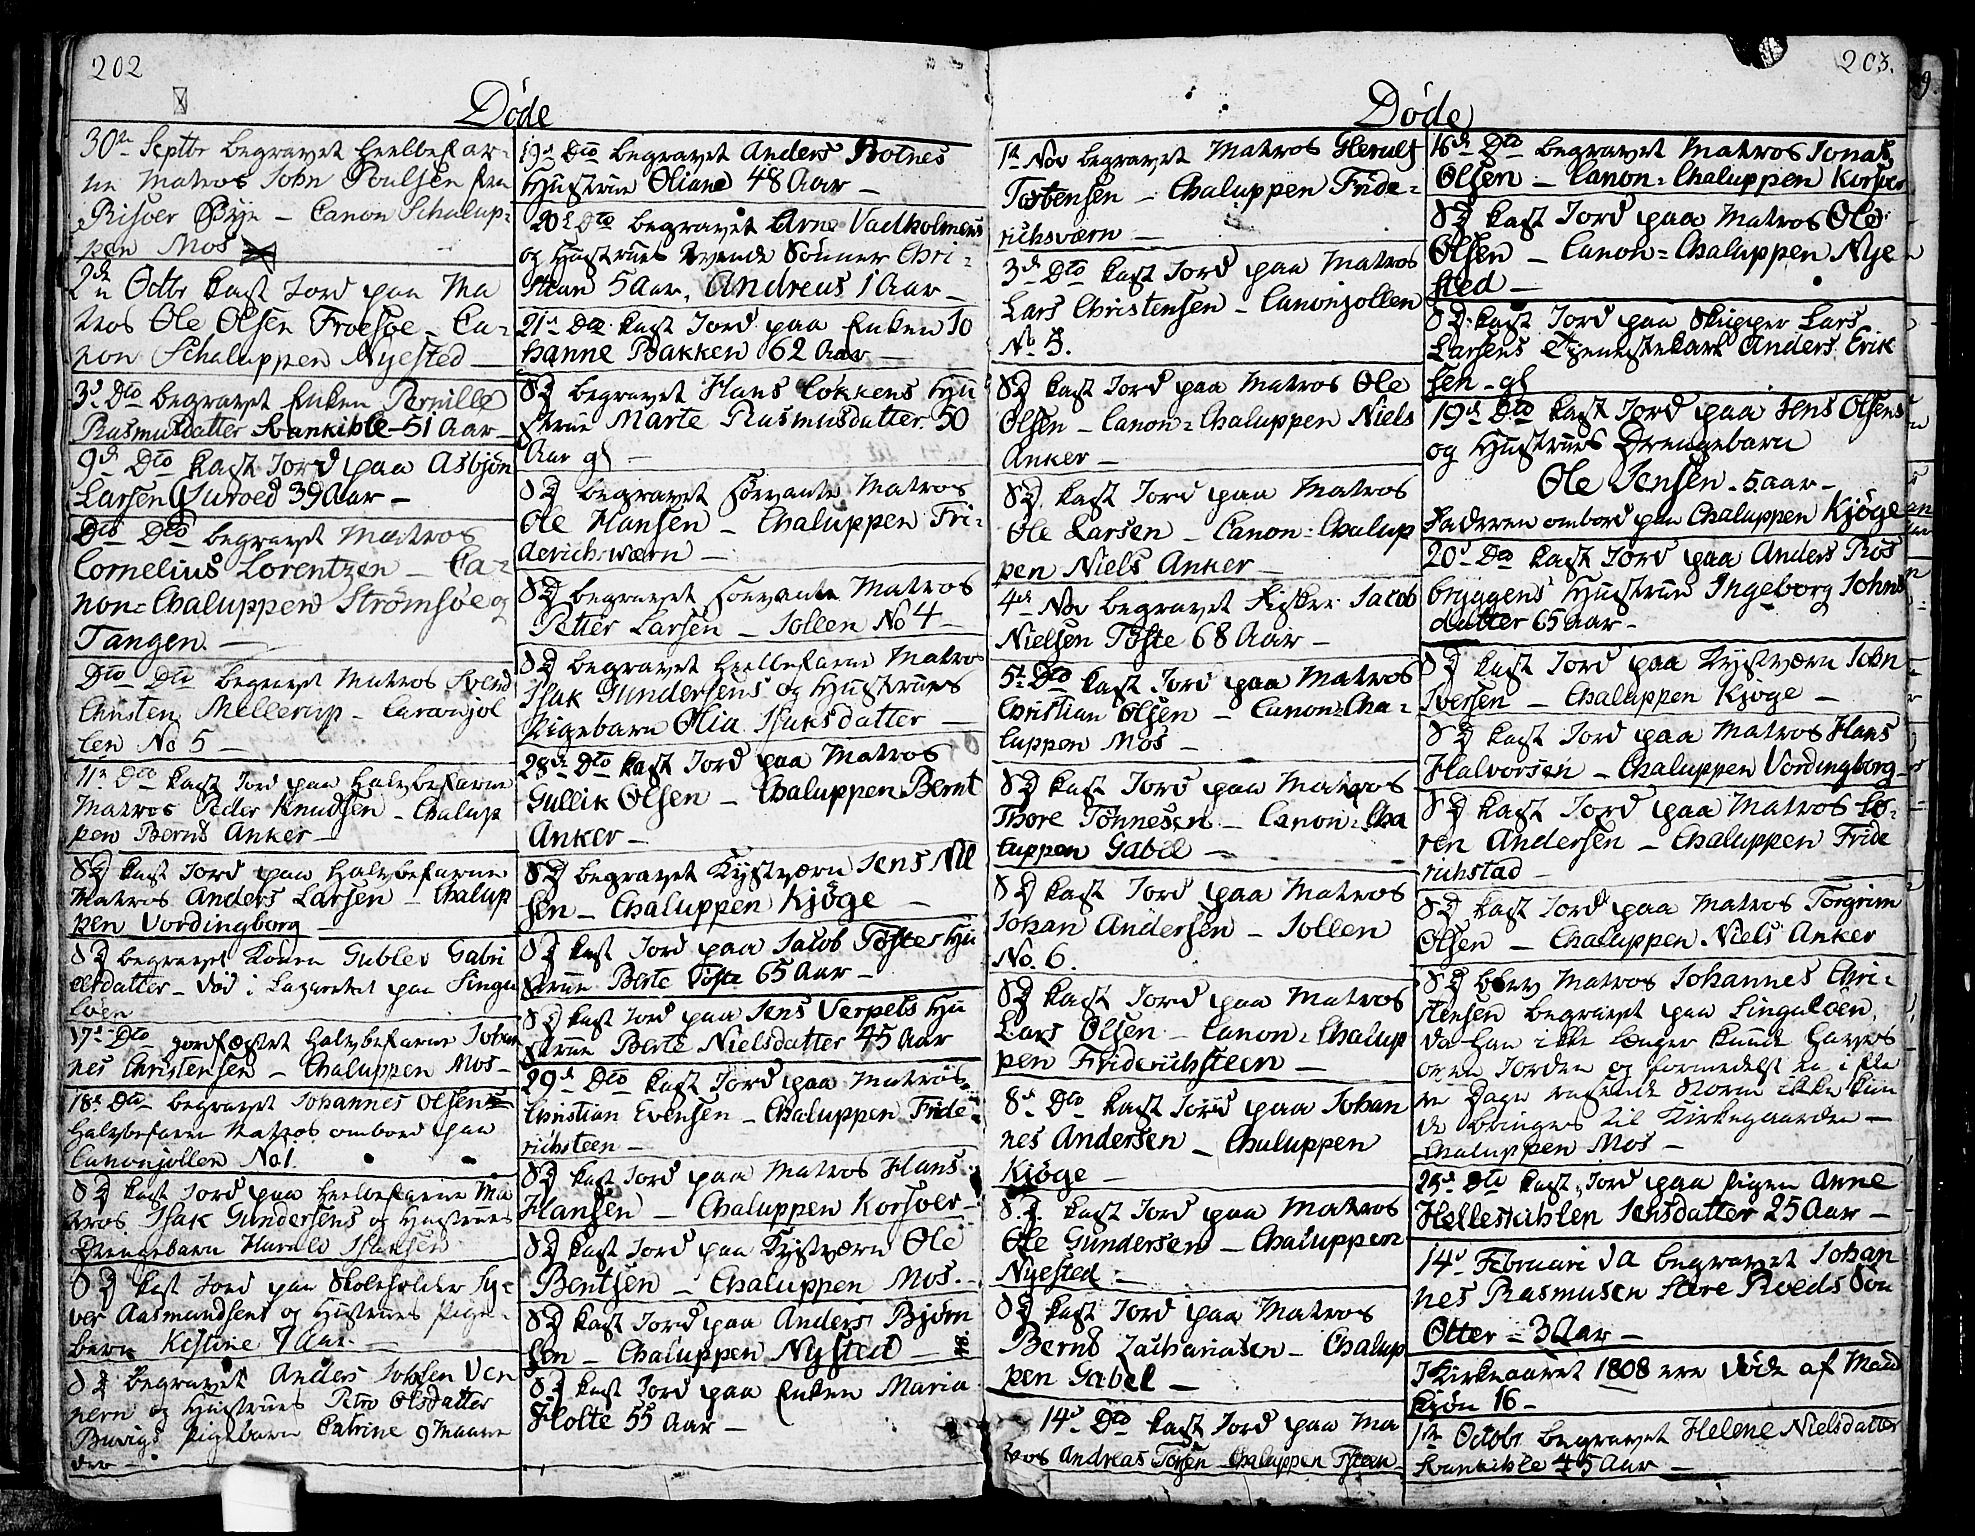 202
Døde
30te Septbr begravet heelbefar-
ne Matros John Poulsen fra
Risøer Bye - Canon Schalup-
pen Mos
2den Octbr kast Jord paa Ma
tros Ole Olsen Froesøe - Ca-
non Schaluppen Nyested -
3d Dto begravet Enken Pernille
Rasmusdatter Krankihle 51 Aar -
9d Dto kast Jord paa Asbjøn
Larsen Guroed 39 Aar -
Dto Dto begravet Matros
Cornelius Lorentzen - Ca-
non=Chaluppen Strømsøe og
Tangen. -
Dto Dto begravet Matros Svend
Christen Mellerup - Canonjol
len No 5 -
11te Dto kast Jord paa halvbefarne
Matros Peder Knudsen - Chalup
pen Bernt Anker -
SD kast Jord paa halvbefarne
Matros Anders Larsen - Chalup
pen Vordingborg -
SD begravet Konen Gublev Gabri
elsdatter - død i Lazarettet paa Singe
løen
17d Dto jordfæstet halvbefarne Johan
nes Christensen - Chaluppen Mos -
18d Dto begravet Johannes Olsen
halvbefaren Matros ombord paa
Canonjollen No 1.
SD kast Jord paa heelbefarne Ma
tros Isak Gundersens og Hustrues
Drengebarn Harald Isaksen
SD kast Jord paa Skoleholder Sy-
ver Aasmundsens og Hustrues Pige-
barn Kistine 7 Aar -
SD begravet Anders Johlen Ven
pern og Hustrues Petro Olsdatter
Buvigs Pigebarn Catrine 9 Maane
der -
19d Dto begravet Anders Botnes
Hustrue Oliane 48 Aar -
20d Dto begravet Arne Vadholmens
og Hustrues tvende Sønner Chri-
stian 5 Aar, Andreas 1 Aar -
21d Dto kast Jord paa Enken Jo
hanne Bakken 62 Aar -
SD begravet Hans Løkkens Hu
strue Marte Rasmusdatter 50
Aar gl -
SD begravet forvante Matros
Ole Hansen - Chaluppen Fri-
derichsværn -
SD begravet forvante Matros
Petter Larsen - Jollen No 4 -
SD begravet heelbefarne Matros
Isak Gundersens og Hustrues
Pigebarn Olia Isaksdatter -
28de Dto kast Jord paa Matros
Gullik Olsen - Chaluppen Bernt
Anker -
SD begravet Kystværn Jens Nil
sen - Chaluppen Kjøge -
SD kast Jord paa Jacob Tøftes Hu
strue Berte Tøfte 65 Aar -
SD kast Jord paa Jens Verpets Hu
strue Berte Nielsdatter 45 Aar
29d Dto kast Jord paa Matros
Christian Evensen - Chaluppen Fride-
richsteen -
SD kast Jord paa Matros Hans
Hansen - Chaluppen Korsøer -
SD kast Jord paa Kystværn Ole
Bentsen - Chaluppen Mos. -
SD kast Jord paa Anders Bjørn
sen - Chaluppen Nysted -
SD kast Jord paa Enken Maria
Holte 55 Aar -
203.
Døde
1te Nov begravet Matros Herulf
Torbensen - Chaluppen Fride-
richsværn -
3d Dto kast Jord paa Matros
Lars Christensen - Canonjollen
No 5.
SD kast Jord paa Matros Ole
Olsen - Canon=Chaluppen Niels
Anker -
SD kast Jord paa Matros
Ole Larsen - Canon=Chalup
pen Niels Anker -
4de Nov begravet Fisker Jacob
Nielsen Tøfte 68 Aar -
5te Dto kast Jord paa Matros
Christian Olsen - Canon=Cha-
luppen Mos -
SD kast Jord paa Matros
Thore Tønnesen - Canon=Cha
luppen Gabel -
SD kast Jord paa Matros
Johan Andersen - Jollen
No. 6.
SD kast Jord paa Matros
Lars Olsen - Canon=Chalup
pen Friderichsteen -
8d Dto kast Jord paa Johan
nes Andersen - Chaluppen
Kjøge -
SD. kast Jord paa Matros
Ole Gundersen - Chaluppen
Nyested -
SD kast Jord paa Matros
Bernt Zachariasen - Chalup
pen Gabel -
14d Dto kast Jord paa Ma
tros Andreas Torsen Chaluppen Fsteen
16d Dto begravet Matros Jonas
Olsen - Canon=Chaluppen Korsøer
SD kast Jord paa Matros Ole
Olsen - Canon=Chaluppen Nye
sted -
SD kast Jord paa Skipper Lars
Larsens Tjenestekarl Anders Erik
sen - gl
19d Dto kast Jord paa Jens Olsens
og Hustrues Drengebarn
Ole Jensen - 5 aar -
Faderen ombord paa Chaluppen Kjøge
20d Dto kast Jord paa Anders Ros
bryggens Hustrue Ingeborg Johns
datter 65 aar -
SD kast Jord paa Kystværn John
Iversen - Chaluppen Kjøge -
SD kast Jord paa Matros Hans
Halvorsen - Chaluppen Vordingborg -
SD kast Jord paa Matros So-
ren Andersen - Chaluppen Fride
richstad -
SD kast Jord paa Matros Torgrim
Olsen - Chaluppen Niels Anker
SD blev Matros Johannes Chri-
stensen begravet paa Singeløen,
da han ikke længer kunde haves
oven Jorden og formedelst en i fle
re Dage rasende Storm ikke kun
de bringes til Kirkegaarden -
Chaluppen Mos -
25d Dto kast Jord paa Pigen Anne
Helleskihlen Jensdatter 25 Aar -
14d Februari da begravet Johan
nes Rasmusen Store Roeds Søn
Otter - 3 Aar -
I Kirkeaaret 1808 ere døde af Mand
kjøn 16 -
1te Octobr begravet Helene Nielsdatter
Krankihle 45 Aar -